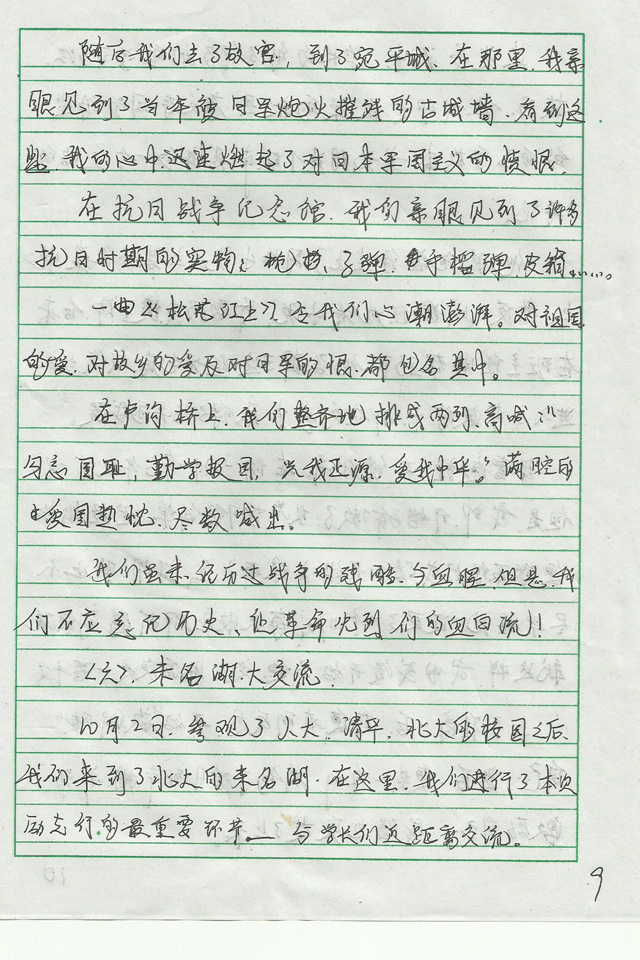 随后我们去了故宫，到了宛平城、在那里，我亲
眼见到了当年被日军炮火摧残的古城墙．看到这
些．我的心中迅速燃起了对日本军国主义的愤恨．
在抗日战争纪念馆．我们亲眼见到了许多
抗日时期的实物：枪支、子弹．手榴弹．皮箱……
一曲《松花江上》，令我们心潮澎湃。对祖国
的爱．对故乡的爱及对日军的恨．都包含其中。
在卢沟桥上．我们整齐地排成两列．高喊：“
勿忘国耻，勤学报国，兴我正源．爱我中华。”满腔的
爱国热忱．尽数喊出。
我们虽未经历过战争的残酷．与血腥．但是．我
们不应忘记历史、让革命先烈们的血白流！
〈六〉．未名湖．大交流．
10月2日．参观了人大．清华．北大的校园之后．
我们来到了北大的未名湖．在这里．我们进行了本次
励志行的最重要环节．— 与学长们近距离交流。
9
10